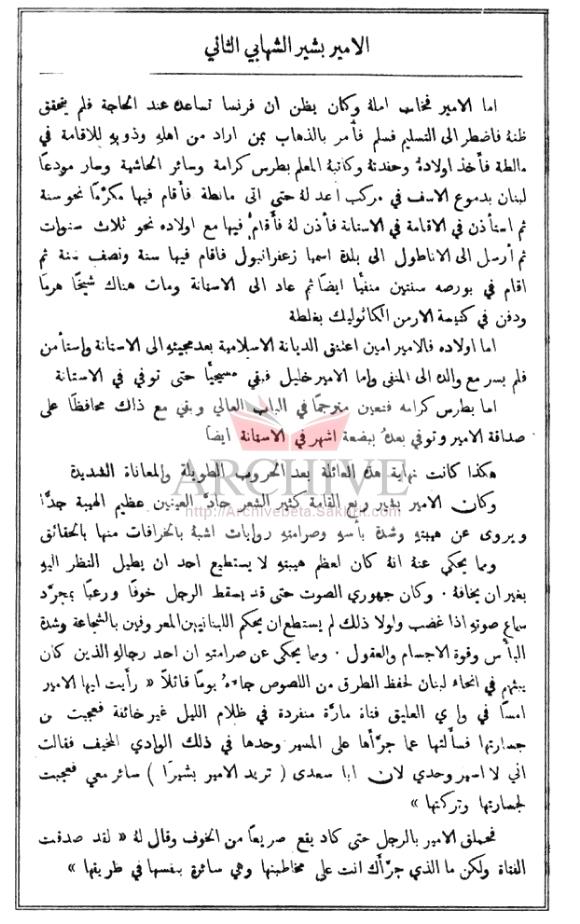 الامير بشير الشهابي الثاني
اما الامير فخاب امله وكان يظن ان فرنسا تساعده عند الحاجة فلم يتحقق
ظنهُ فاضطر الى التسليم فسلم فأمر بالذهاب بمن اراد من اهلهِ وذويهِ للاقامة في
مالطة فأخذ اولادهُ وحفدتهُ وكاتبهُ المعلم بطرس كرامة وسائر الحاشية وسار مودعاً
لبنان بدموع الاسف في مركب اعد لهُ حتى اتى مالطة فأقام فيها مكرّماً نحو سنة
ثم استأذن في الاقامة في الاستانة فأذن لهُ فأقام فيها مع اولاده نحو ثلاث سنوات
ثم أرسل الى الاناطول الى بلدة اسمها زعفرانبول فاقام فيها سنة ونصف سنة ثم
اقام في بورصه سنتين منفيًا ايضاً ثم عاد الى الاستانة ومات هناك شيخًا هرماً
ودفن في كنيسة الارمن الكاثوليك بغلطة
اما اولاده فالامير امين اعتنق الديانة الاسلامية بعد مجيئهِ الى الاستانة واستأمن
فلم يسر مع والدهِ الى المنفى واما الامير خليل فبقي مسيحيًّا حتى توفي في الاستانة
اما بطرس كرامه فتعين مترجماً في الباب العالي وبقي مع ذاك محافظاً على
صداقة الامير وتوفي بعدهُ ببضعة اشهر في الاستانة ايضاً
هكذا كانت نهاية هذه العائلة بعد الحروب الطويلة والمعاناة الشديدة
ARCHIVE
وكان الامير بشير ربع القامة كثير الشعر حادّ العينين عظيم الهيبة جدًّا
http://Archivebeta.Sakhrit.com
ويروى عن هيبتهِ وشدة بأسهِ وصرامتهِ روايات اشبهُ بالخرافات منها بالحقائق
ومما يحكى عنهُ انهُ كان لعظم هيبتهِ لا يستطيع احد ان يطيل النظر اليهِ
بغير ان يخافهُ . وكان جهوري الصوت حتى قد يسقط الرجل خوفًا ورعبًا بمجرّد
سماع صوتهِ اذا غضب ولولا ذلك لم يستطع ان يحكم اللبنانيين المعروفين بالشجاعة وشدة
البأس وقوة الاجسام والعقول . ومما يحكى عن صرامتهِ ان احد رجالهِ الذين كان
يبثهم في انحاء لبنان لحفظ الطرق من اللصوص جاءهُ يومًا قائلاً « رأيت ايها الامير
امسًا في وادي العليق فتاة مارّة منفردة في ظلام الليل غير خائفة فعجبت من
جسارتها فسألتها عما جرّأها على المسير وحدها في ذلك الوادي المخيف فقالت
اني لا اسير وحدي لان ابا سعدى ( تريد الامير بشيرًا ) سائر معي فعجبت
لجسارتها وتركتها »
فحملق الامير بالرجل حتى كاد يقع صريعًا من الخوف وقال لهُ « لقد صدقت
الفتاة ولكن ما الذي جرّأك انت على مخاطبتها وهي سائرة بنفسها في طريقها »